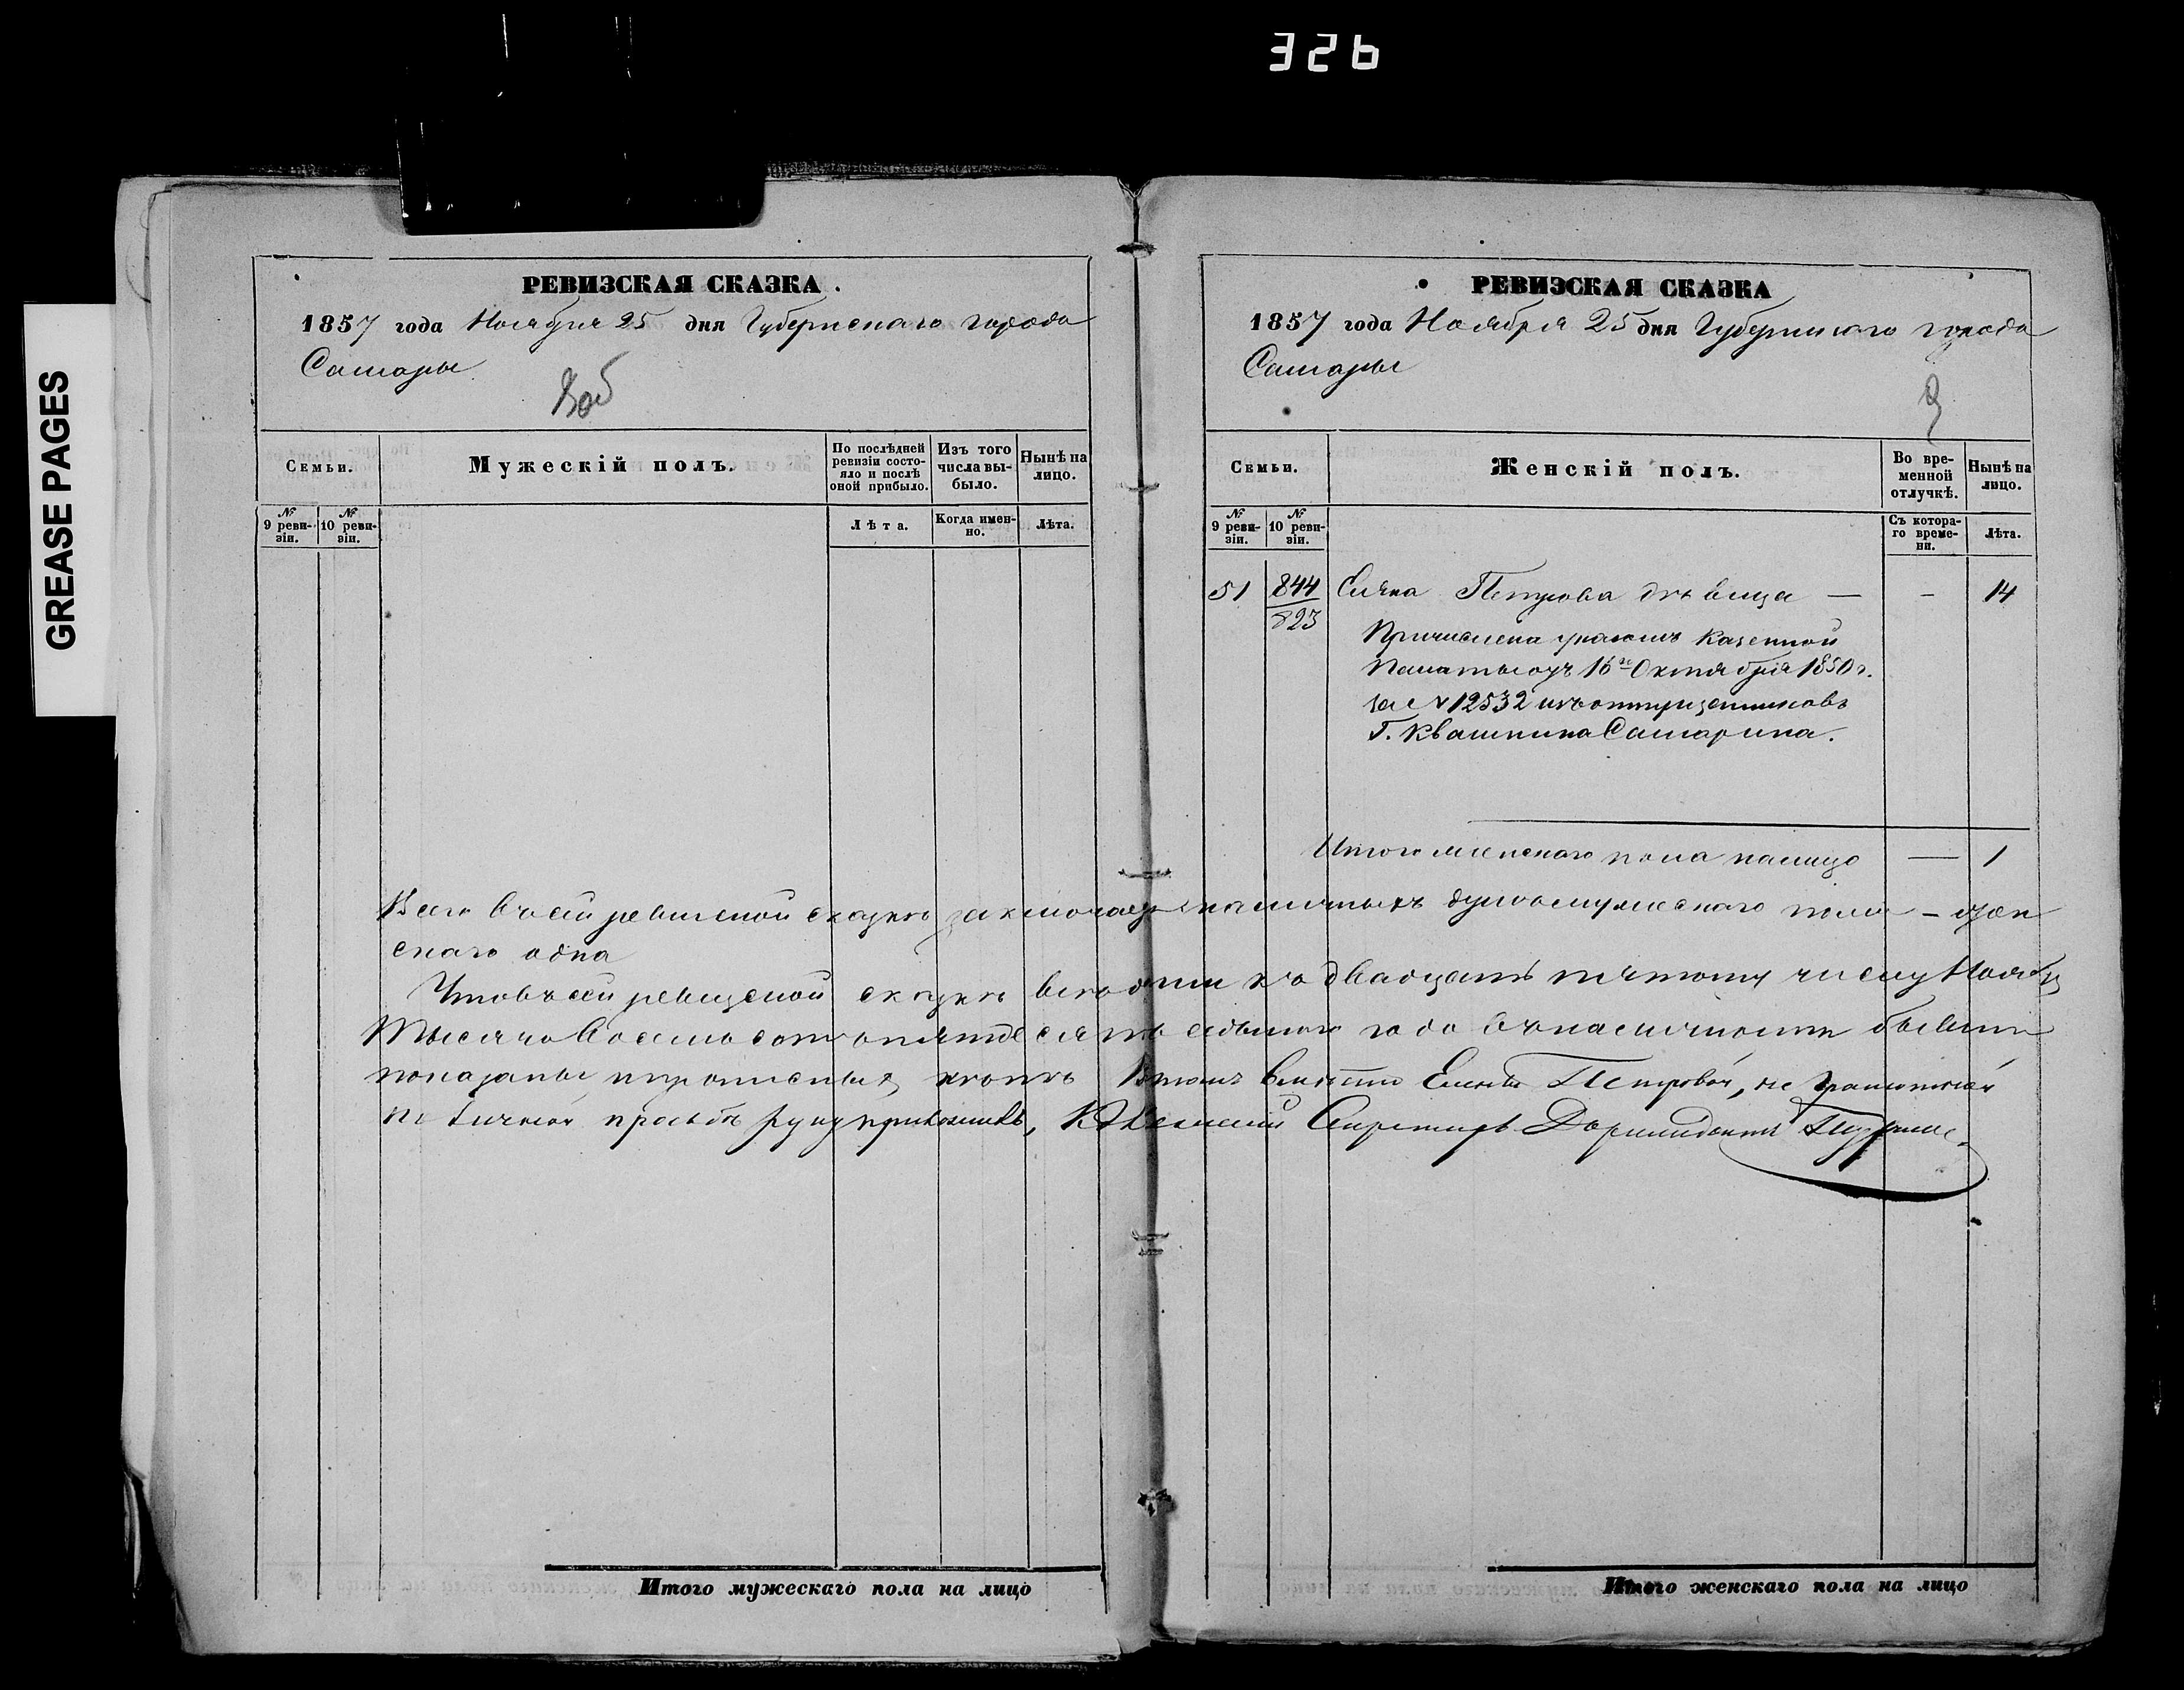 326
GREASE PAGES
РЕВИЗСКАЯ СКАЗКА.
1857 года Ноября 25 дня Губернскаго города
Самары
Семьи.
Мужескій полъ.
По послѣдней ревизіи состояло и послѣ оной прибыло.
Изъ того числа выбыло.
Нынѣ на лицо.
№ 9 ревизіи.
№ 10 ревизіи.
Лѣта.
Когда именно.
Лѣта.
РЕВИЗСКАЯ СКАЗКА
1857 года Ноября 25 дня Губернскаго города
Самары
Семьи.
Женскій полъ.
Во временной отлучкѣ.
Нынѣ на лицо.
№ 9 ревизіи.
№ 10 ревизіи.
Съ котораго времени.
Лѣта.
51 844 Елена Петрова дѣвица — - 14
823
Причислена указомъ Казенной
Палаты отъ 16го Октября 1850 г.
за № 12532 изъ отпущенниковъ
Г. Квашнина Самарина.
Итого женскаго пола налицо — 1
Всего въ сей ревизской сказкѣ заключается наличныхъ душъ мужескаго пола - жен
скаго одна
Что въ сей ревизской сказкѣ всѣ къ двадцать пятому числу Ноября
Тысяча восемьсотъ пятьдесятъ седьмаго года въ наличности бывшiе
показаны и прописныхъ нѣтъ Въ томъ вмѣсто Елены Петровой, не грамотной
по личной просьбѣ руку приложилъ, Секретарь
Итого мужескаго пола на лицо
Итого женскаго пола на лицо